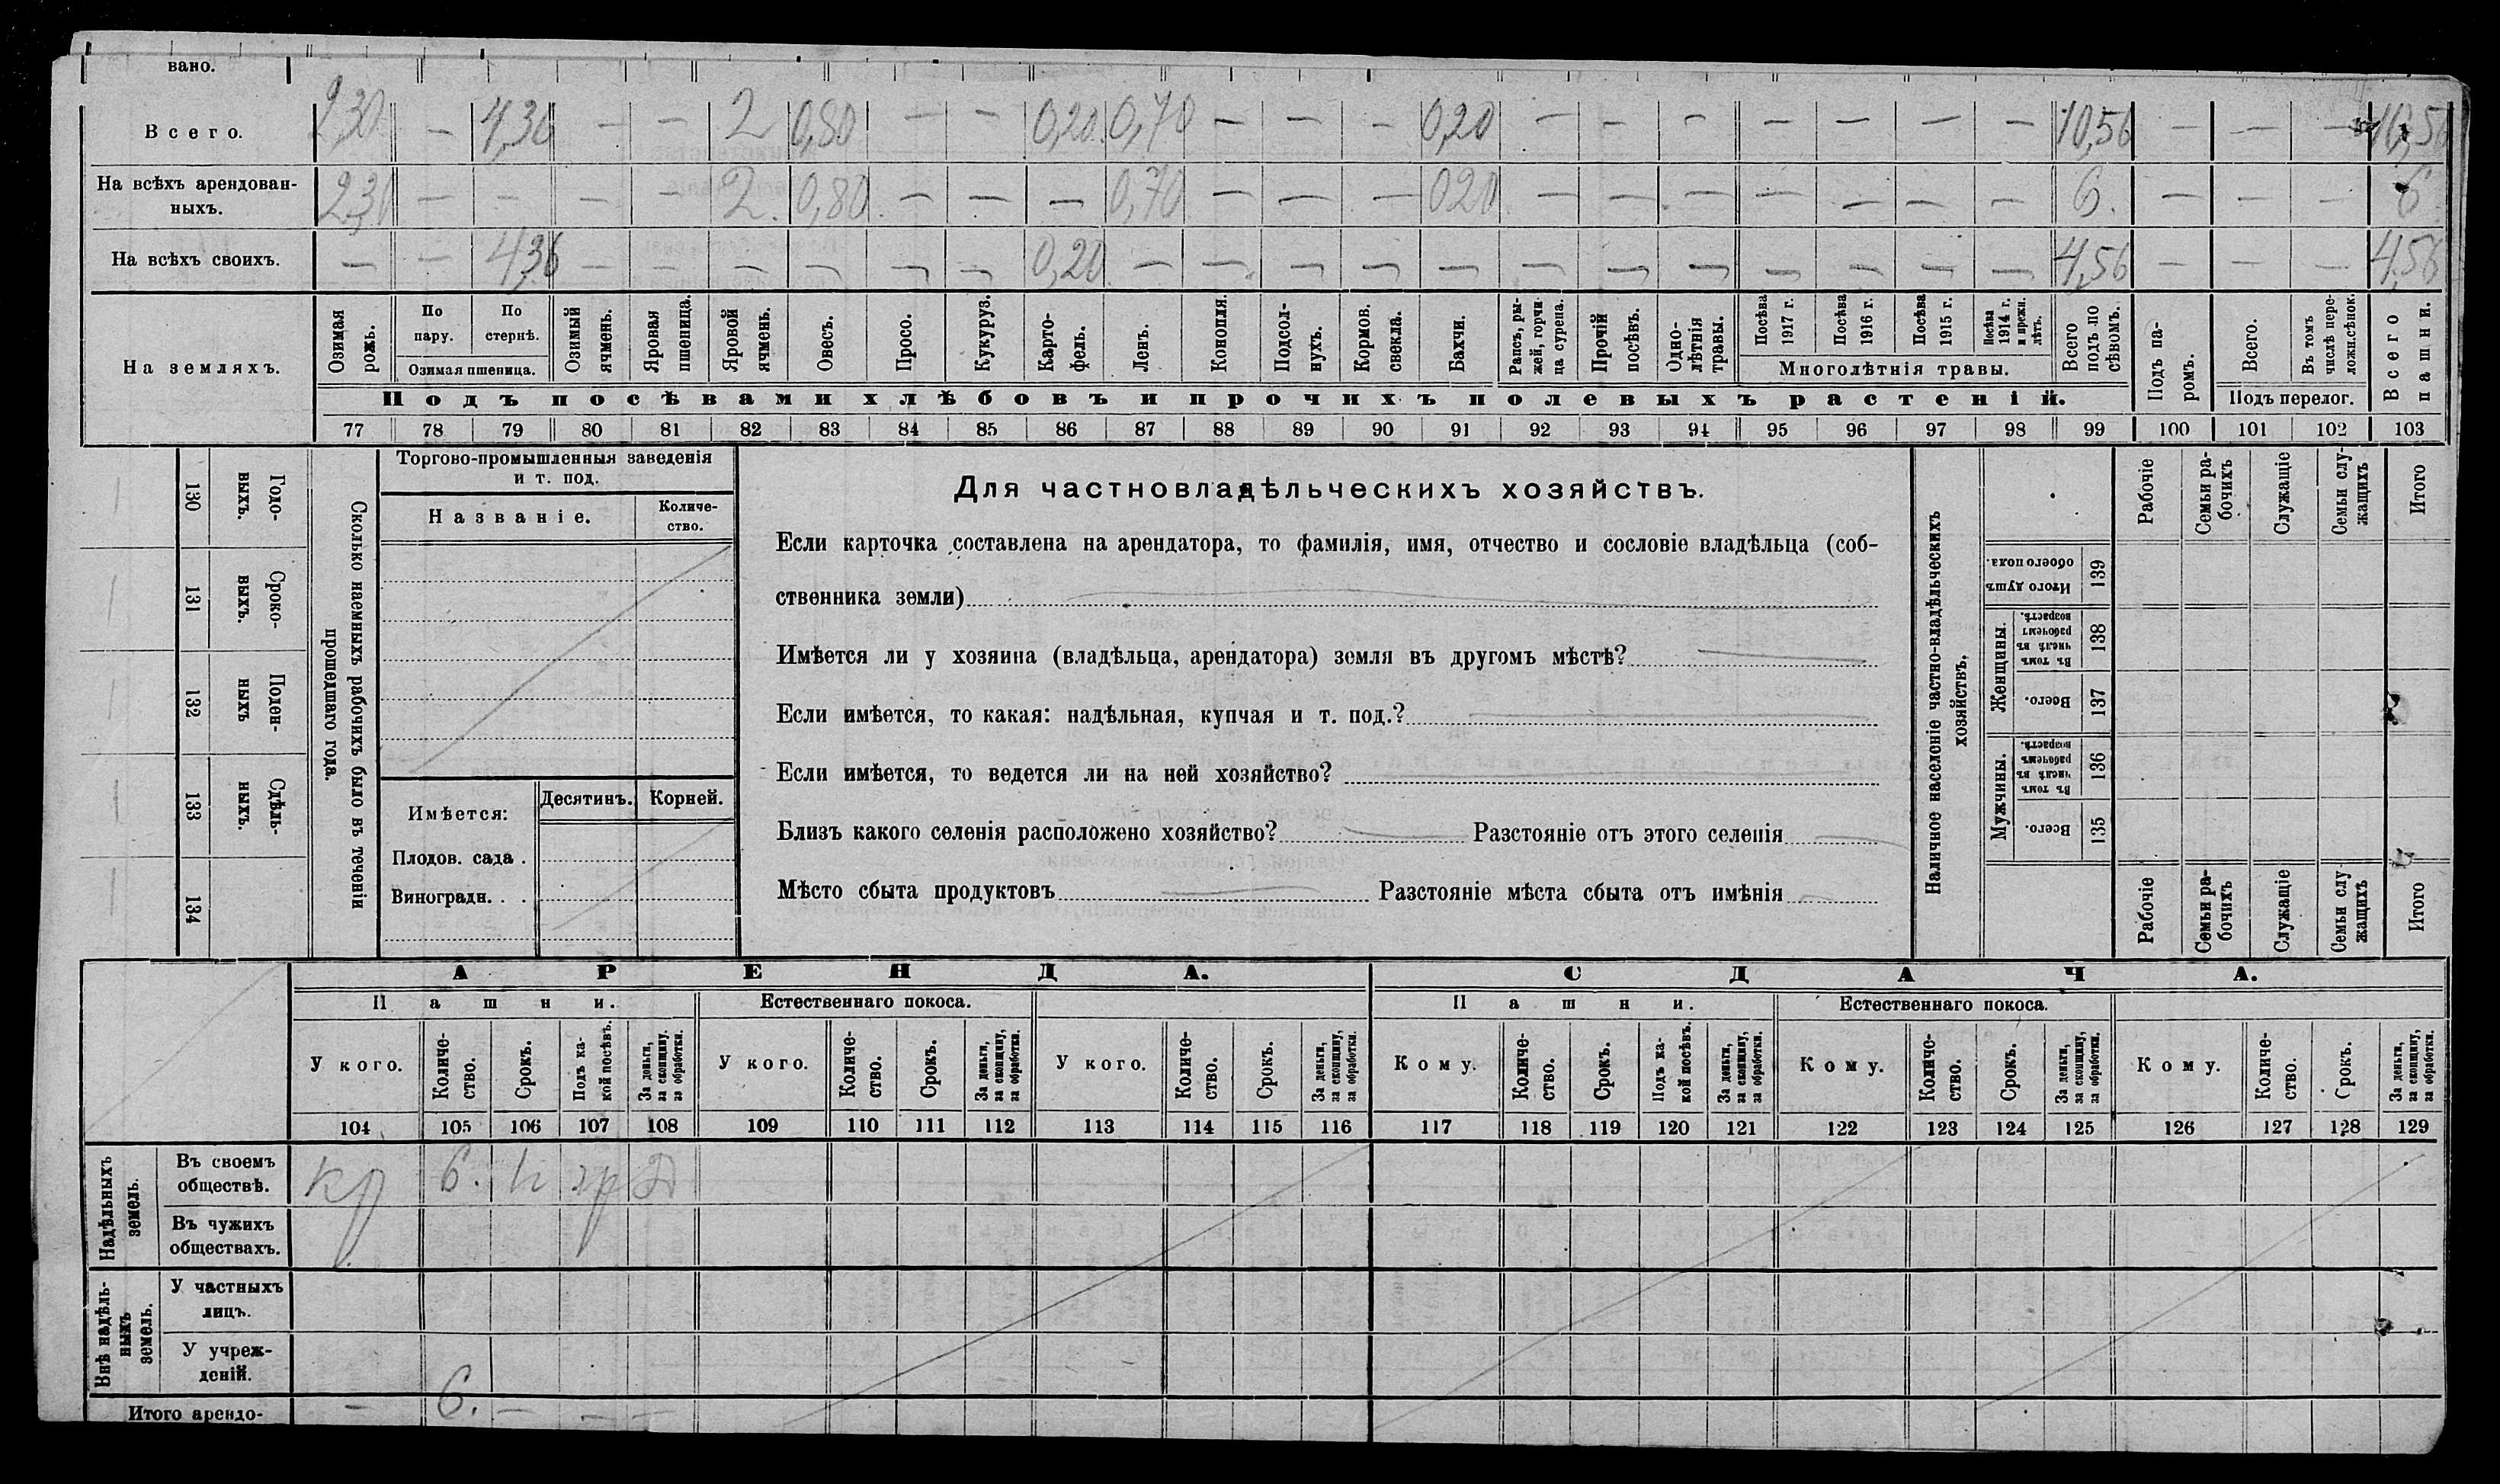 вано.
Всего. 2,30 — 4,36 — — 2 0,80 — — 0,20 0,70 — — — 0,20 — — — — — — — 10,56 — — — 10,56
На всѣхъ арендован-
ныхъ. 2,30 — — — — 2. 0,80 — — — 0,70 — — — 020 — — — — — — — 6. — — — 6
На всѣхъ своихъ. — — 4,36 — — — — — — 0,20 — — — — — — — — — — — — 4,56 — — — 4,56
На земляхъ.
Озимая рожь.
По пару.
По стернѣ.
Озимая пшеница.
Озимый ячмень.
Яровая пшеница.
Яровой ячмень.
Овесъ.
Просо.
Кукуруз.
Карто-
фель.
Ленъ.
Конопля.
Подсол-
нухъ.
Кормов.
свекла.
Бахчи.
Рапсъ, ры-
жей, горчи
ца сурепа.
Прочій
посѣвъ.
Одно-
лѣтнія
травы.
Посѣва
1917 г.
Посѣва
1916 г.
Посѣва
1915 г.
Посѣва
1914 г.
и прежн.
лѣтъ.
Многолѣтнія травы.
Всего
подъ по
сѣвомъ.
Подъ па-
ромъ.
Всего.
Въ томъ
числѣ пере-
ложн.сѣнок.
Подъ перелог.
Всего
пашни.
Подъ посѣвами хлѣбовъ и прочихъ полевыхъ растеній.
77 78 79 80 81 82 83 84 85 86 87 88 89 90 91 92 93 94 95 96 97 98 99 100 101 102 103
Годо-
выхъ.
130
Сроко-
выхъ.
131
Поден-
ныхъ
132
Сдѣль-
ныхъ.
133
134
Сколько наемныхъ рабочихъ было въ теченіи
прошедшаго года.
Торгово-промышленныя заведенія
и т. под.
Названіе.
Количе-
ство.
Имѣется:
Десятинъ.
Корней.
Плодов. сада .
Виноградн. . .
Для частновладѣльческихъ хозяйствъ.
Если карточка составлена на арендатора, то фамилія, имя, отчество и сословіе владѣльца (соб-
ственника земли)
Имѣется ли у хозяина (владѣльца, арендатора) земля въ другомъ мѣстѣ?
Если имѣется, то какая: надѣльная, купчая и т. под.?
Если имѣется, то ведется ли на ней хозяйство?
Близъ какого селенія расположено хозяйство? Разстояніе отъ этого селенія
Мѣсто сбыта продуктовъ Разстояніе мѣста сбыта отъ имѣнія
Наличное населеніе частно-владѣльческихъ
хозяйствъ.
Рабочіе
Семьи ра-
бочихъ
Служащіе
Семьи слу-
жащихъ
Итого
Итого душъ
обоего пола.
139
Женщины.
Въ томъ
числѣ въ
рабочемъ
возрастѣ.
138
Всего.
137
Мужчины.
Въ томъ
числѣ въ
рабочемъ
возрастѣ.
136
Всего.
135
Рабочіе
Семьи ра-
бочихъ
Служащіе
Семьи слу
жащихъ
Итого
АРЕНДА.
СДАЧА.
Пашни.
Естественнаго покоса.
Пашни.
Естественнаго покоса.
У кого.
Количе-
ство.
Срокъ.
Подъ ка-
кой посѣвъ.
За деньги,
за скопщину.
за обработки.
У кого.
Количе-
ство.
Срокъ.
За деньги,
за скопщину,
за обработки.
У кого.
Количе-
ство.
Срокъ.
За деньги,
за скопщину,
за обработки.
Кому.
Количе-
ство.
Срокъ.
Подъ ка-
кой посѣвъ.
За деньги,
за скопщину,
за обработки.
Кому.
Количе-
ство.
Срокъ.
За деньги,
за скопщину,
за обработки.
Кому.
Количе-
ство.
Срокъ.
За деньги,
за скопщину,
за обработки.
104 105 106 107 108 109 110 111 112 113 114 115 116 117 118 119 120 121 122 123 124 125 126 127 128 129
Надѣльныхъ
земель.
Въ своемъ
обществѣ. кр 6.
Въ чужихъ
обществахъ.
Внѣ надѣль-
ныхъ
земель.
У частныхъ
лицъ.
У учреж-
деній.
Итого арендо- — 6. — — —